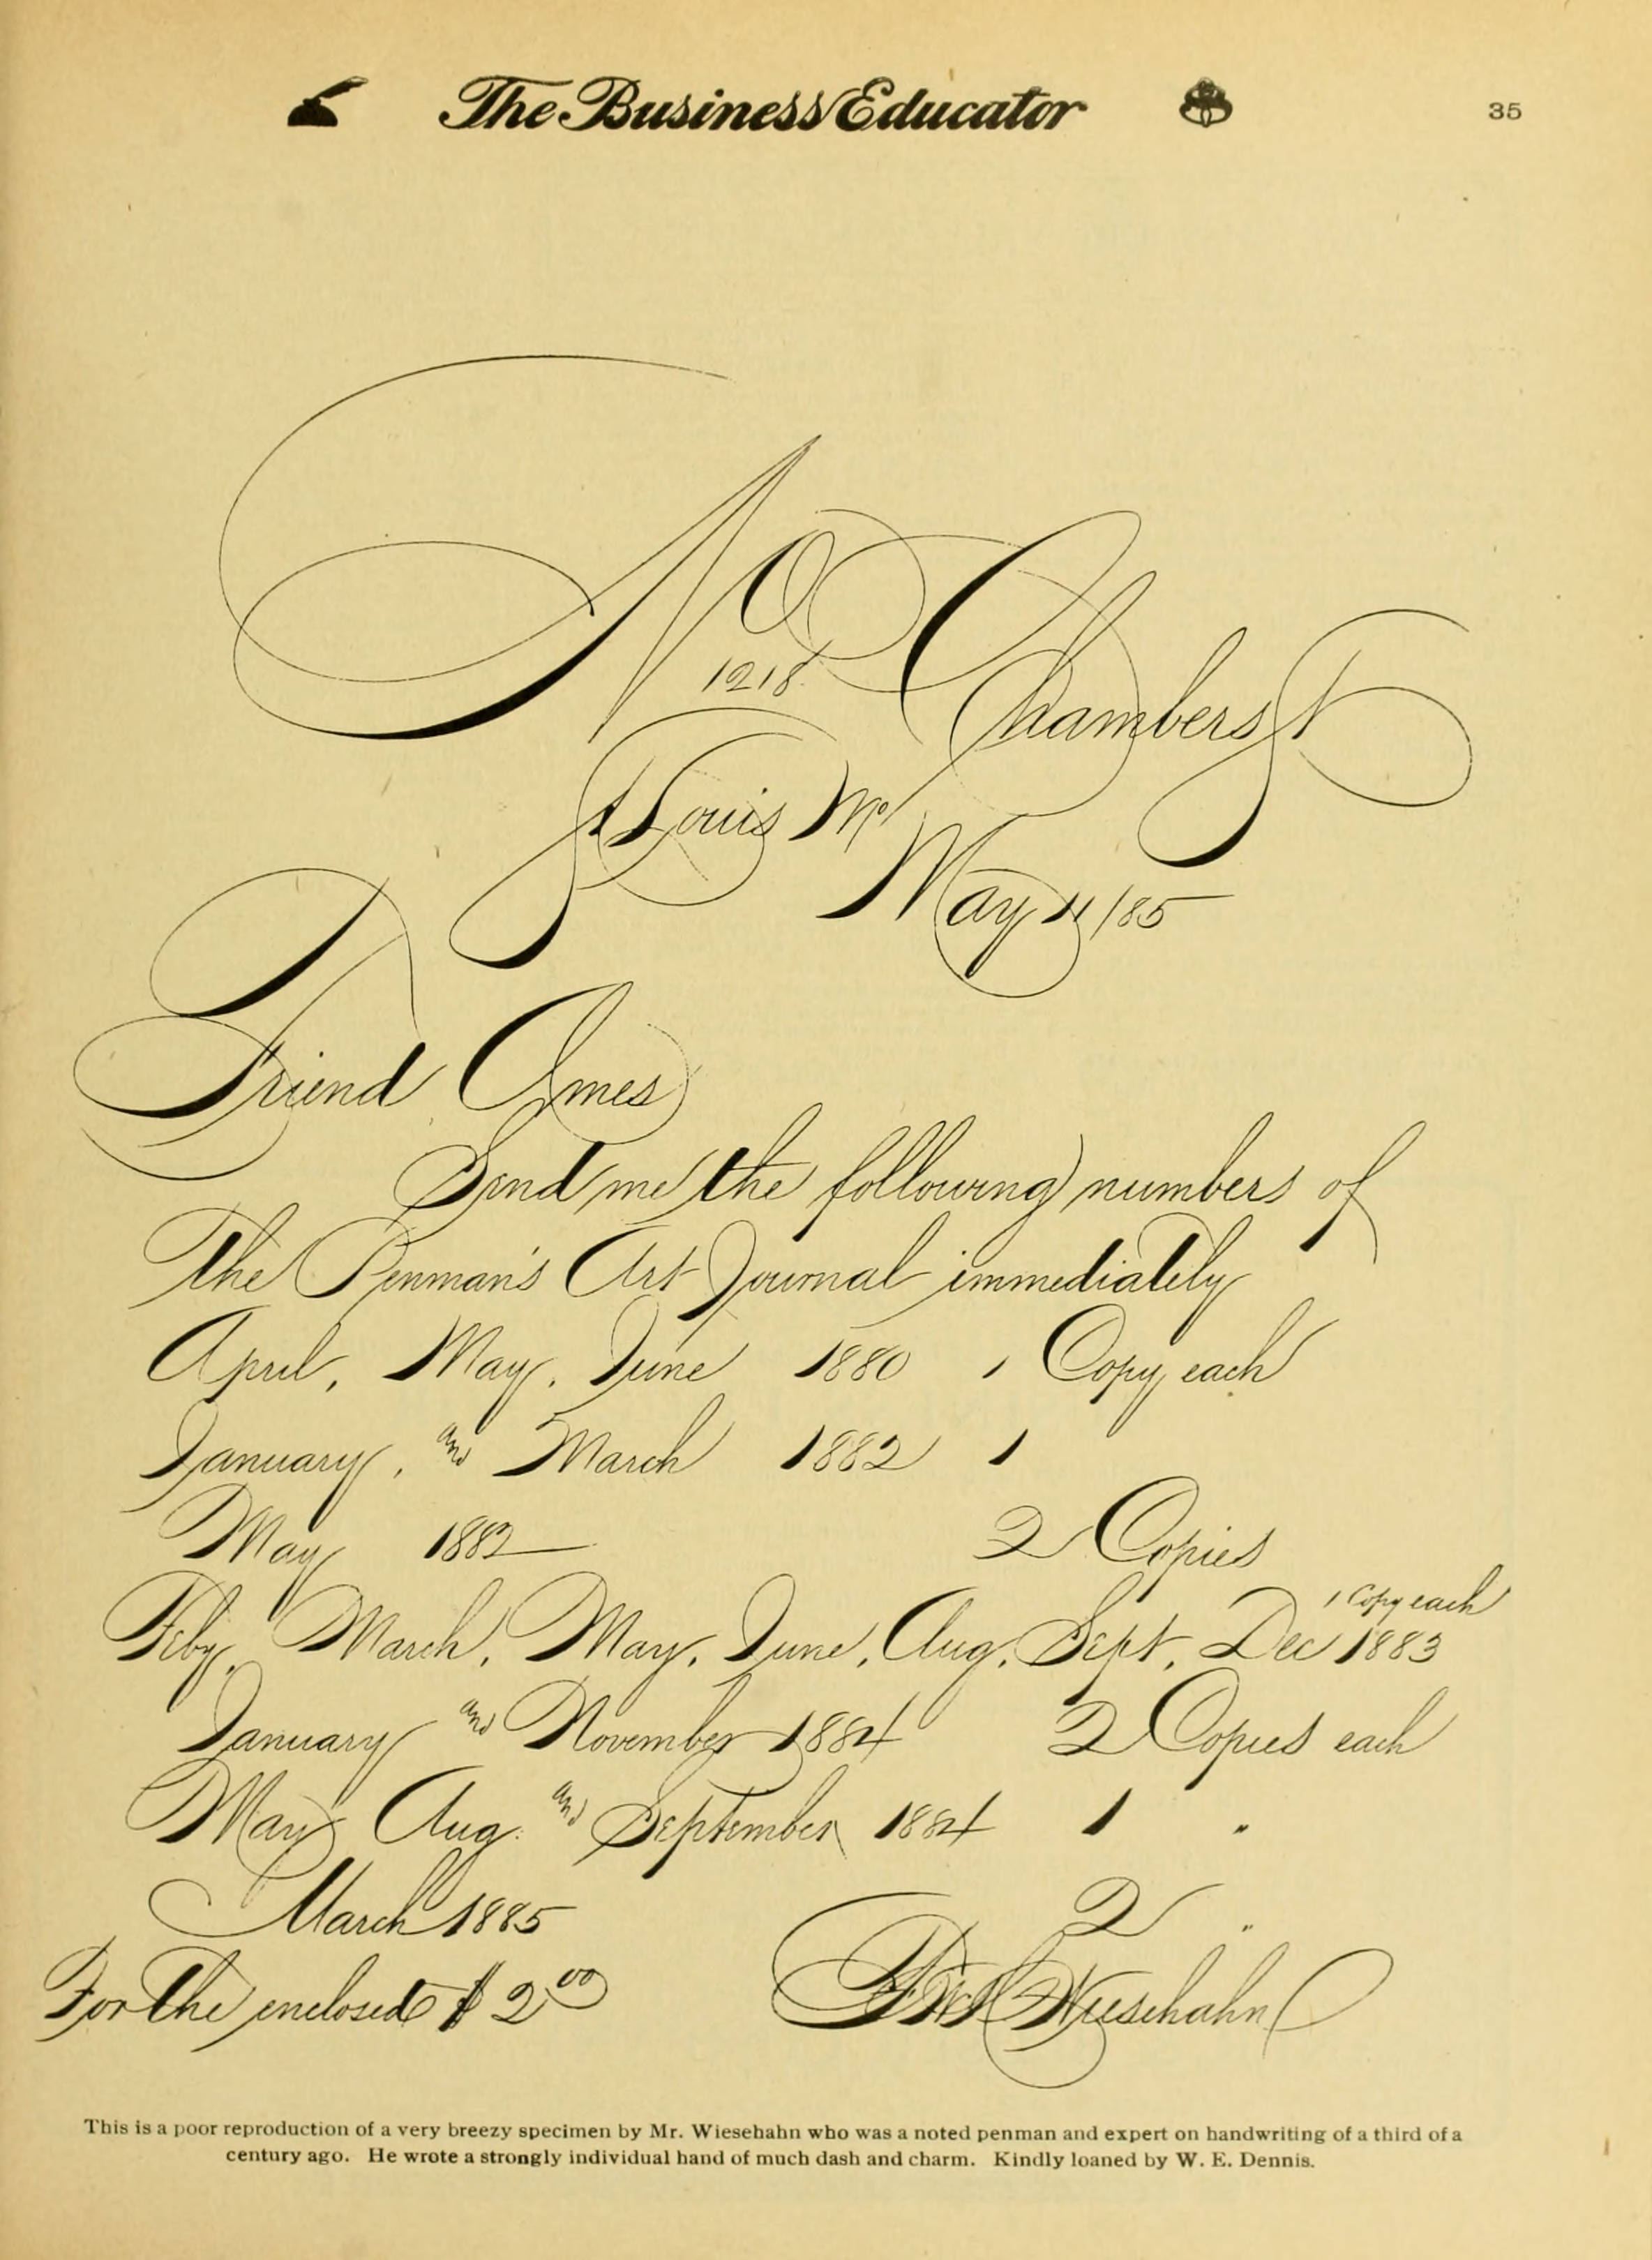 The Business Educator
35
No 1218 Chambers St
St Louis Mo
May 11/85
Friend Ames
Send me the following numbers of
The Penman's Art Journal immediately
April, May, June 1880 1 Copy each
January, and March 1882 1
May 1882 2 Copies
Feby, March, May, June, Aug, Sept, Dec 1883 1 Copy each
January and November 1884 2 Copies each
May Aug. and September 1884 1 "
March 1885 2 "
For the enclosed $ 2 00
Wiesehahn
This is a poor reproduction of a very breezy specimen by Mr. Wiesehahn who was a noted penman and expert on handwriting of a third of a
century ago. He wrote a strongly individual hand of much dash and charm. Kindly loaned by W. E. Dennis.